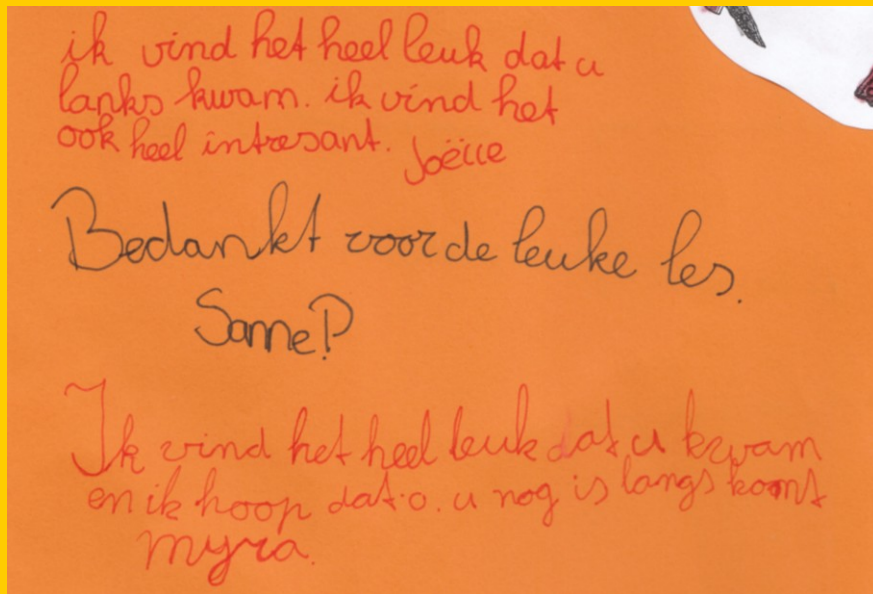 ik vind het heel leuk dat u
lanks kwam. ik vind het
ook heel intresant. Joëlle
Bedankt voor de leuke les.
Sanne P
Ik vind het heel leuk dat u kwam
en ik hoop dat.o. u nog is langs komt
myra.